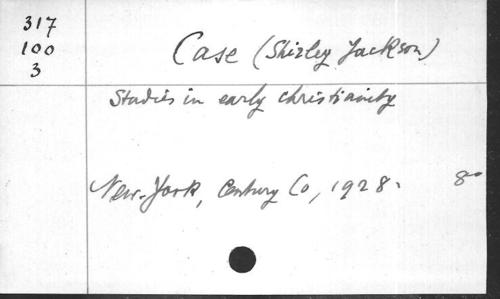 317
100
3
Case (Shirley Jackson)
Studies in early christianity
New-York, Century Co, 1928. 8°